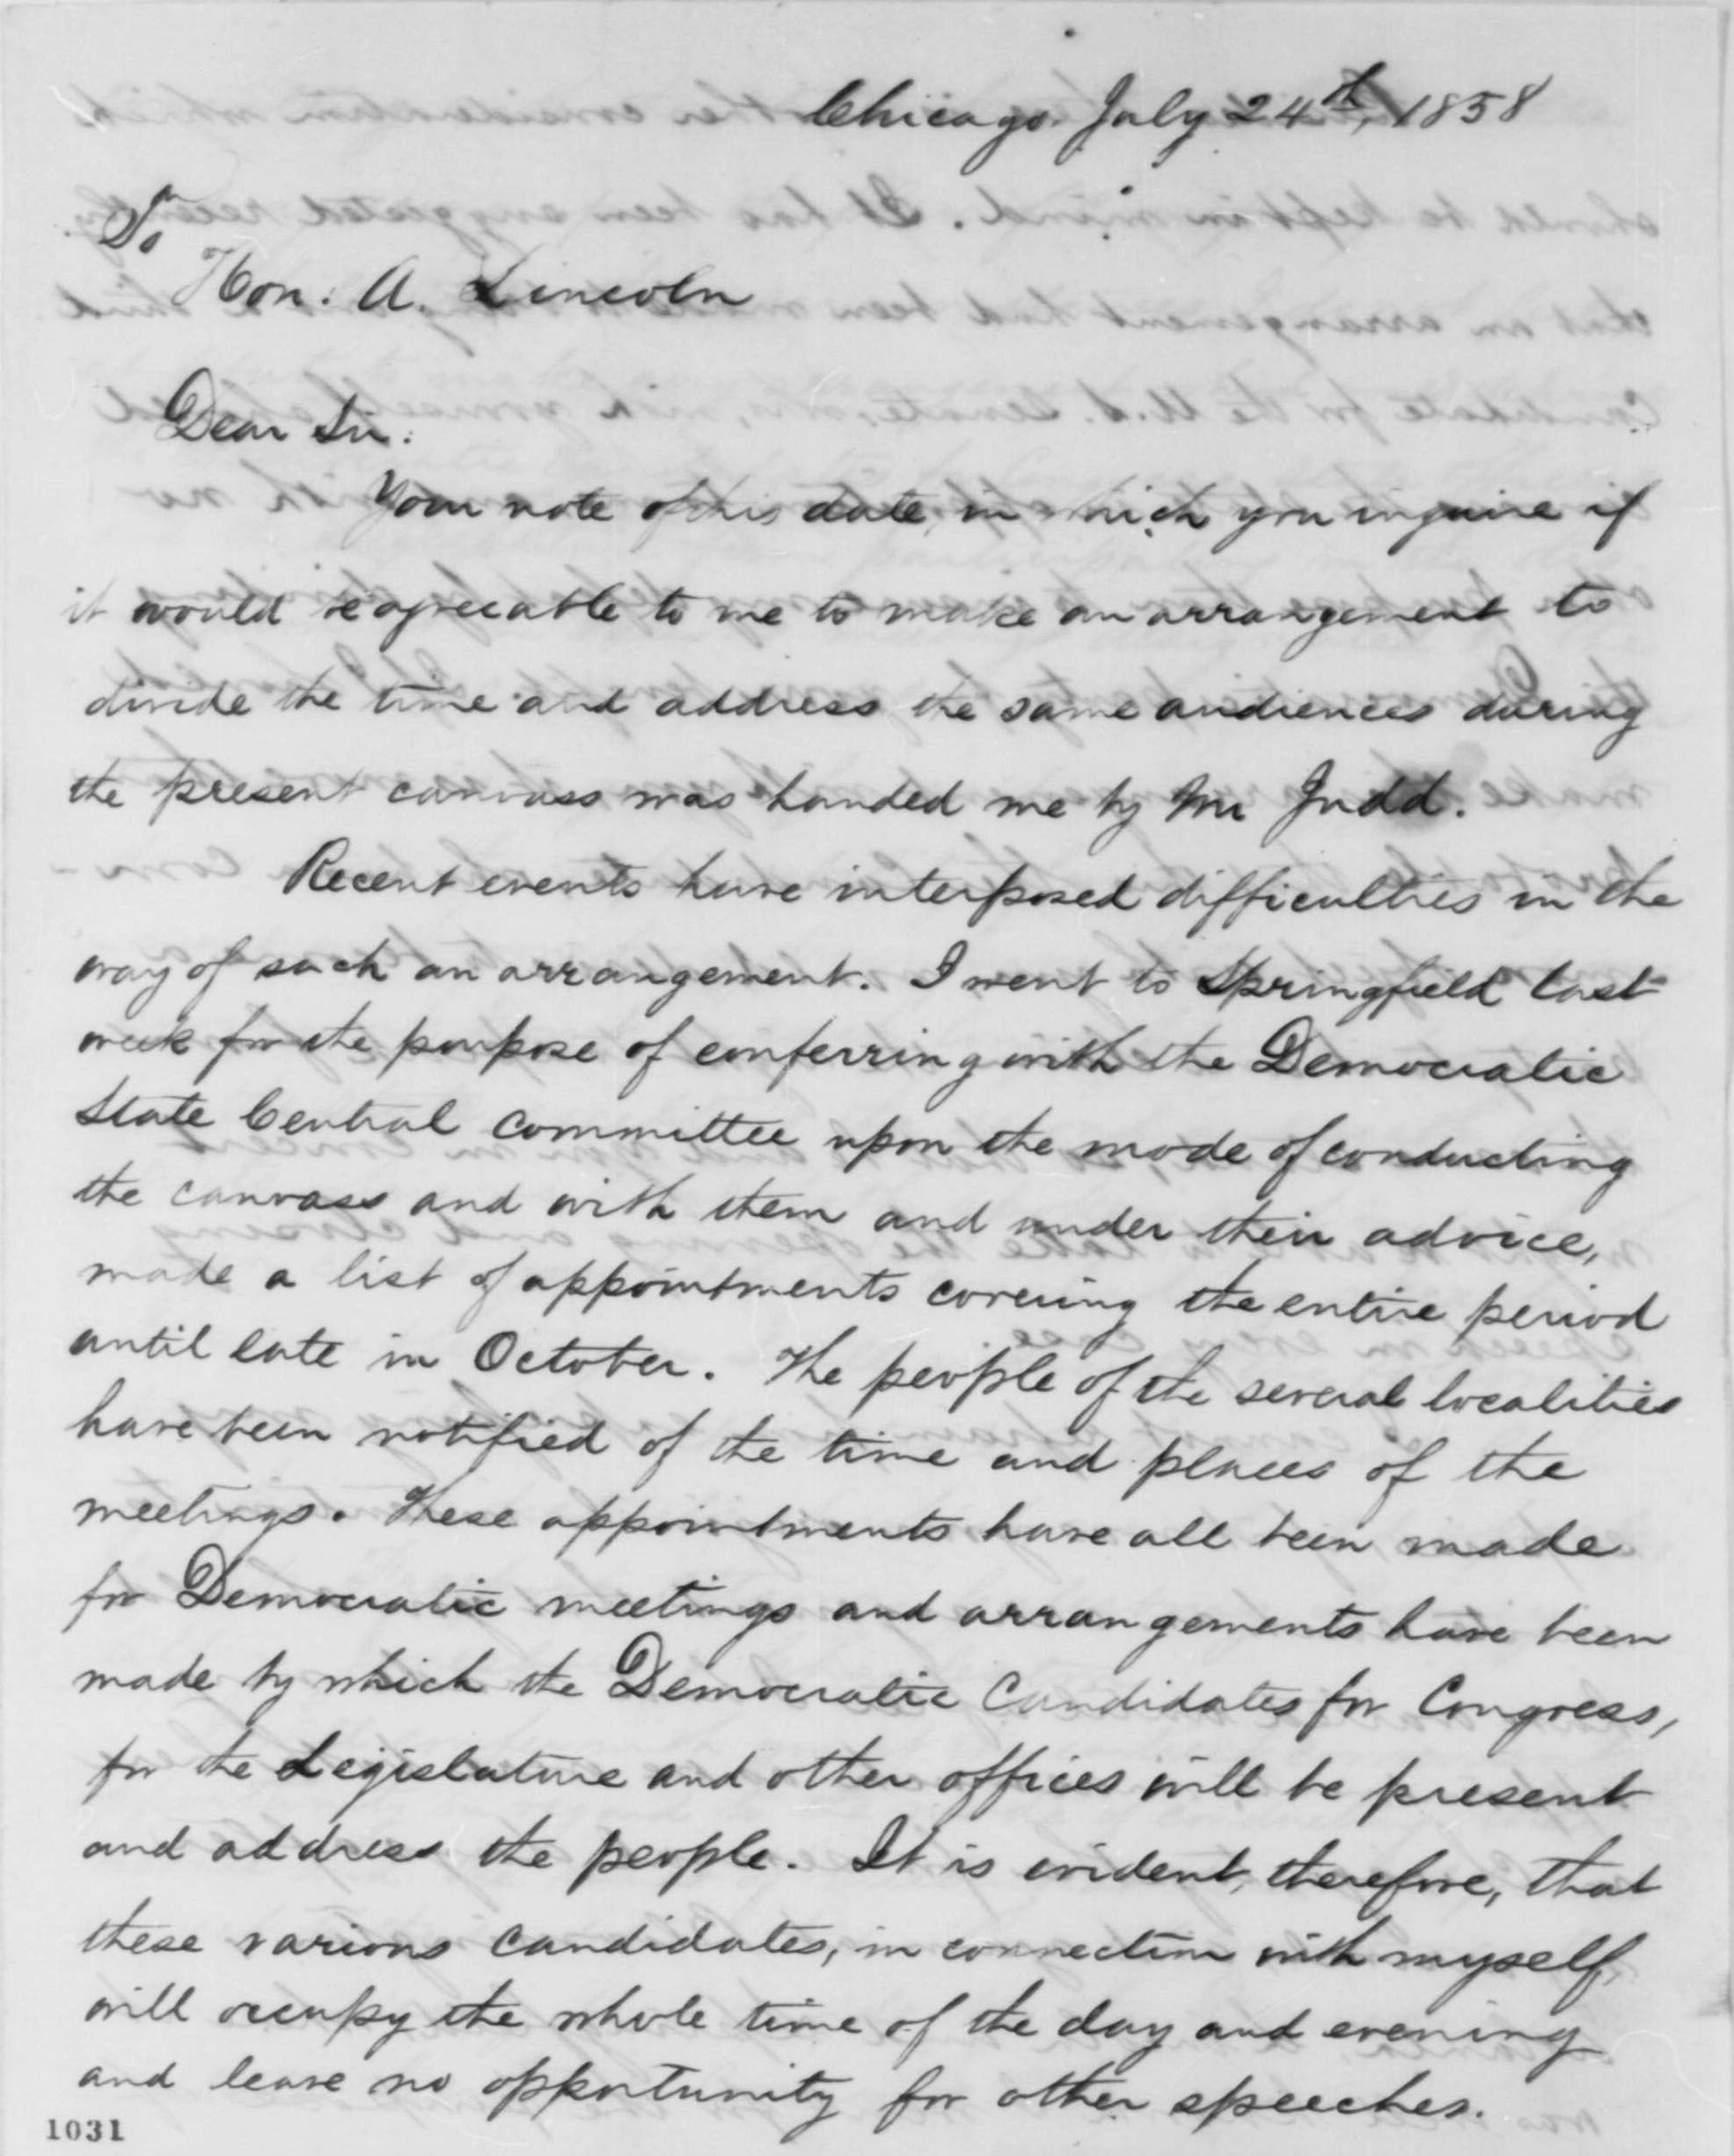 Chicago July 24th, 1858
To
Hon. A. Lincoln
Dear Sir:
Your note of this date, in which you inquire if
it would be agreeable to me to make an arrangement to
divide the time and address the same audiences during
the present canvass was handed me by Mr Judd.
Recent events have interposed difficulties in the
way of such an arrangement. I went to Springfield last
week for the purpose of conferring with the Democratic
State Central Committee upon the mode of conducting
the canvass and with them and under their advice,
made a list of appointments covering the entire period
until late in October. The people of the several localities
have been notified of the time and places of the
meetings. These appointments have all been made
for Democratic meetings and arrangements have been
made by which the Democratic Candidates for Congress,
for the Legislature and other offices will be present
and address the people. It is evident, therefore, that
these various candidates, in connection with myself,
will occupy the whole time of the day and evening
and leave no opportunity for other speeches.
1031